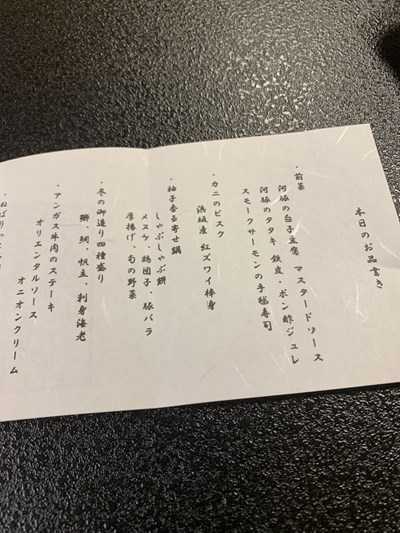 本日のお品書き
・前菜
河豚の白子豆腐 マスタードソース
河豚のタタキ 鉄皮・ポン酢ジュレ
スモークサーモンの手毬寿司
・カニのビスク
浜坂産 紅ズワイ棒身
・柚子香る寄せ鍋
しゃぶしゃぶ餅
メヌケ・鶏団子・豚バラ
厚揚げ・旬の野菜
・冬の御造り四種盛り
鰤、鯛、帆立、刺身海老
・アンガス牛肉のステーキ
オリエンタルソース
オニオンクリーム
・ねばり